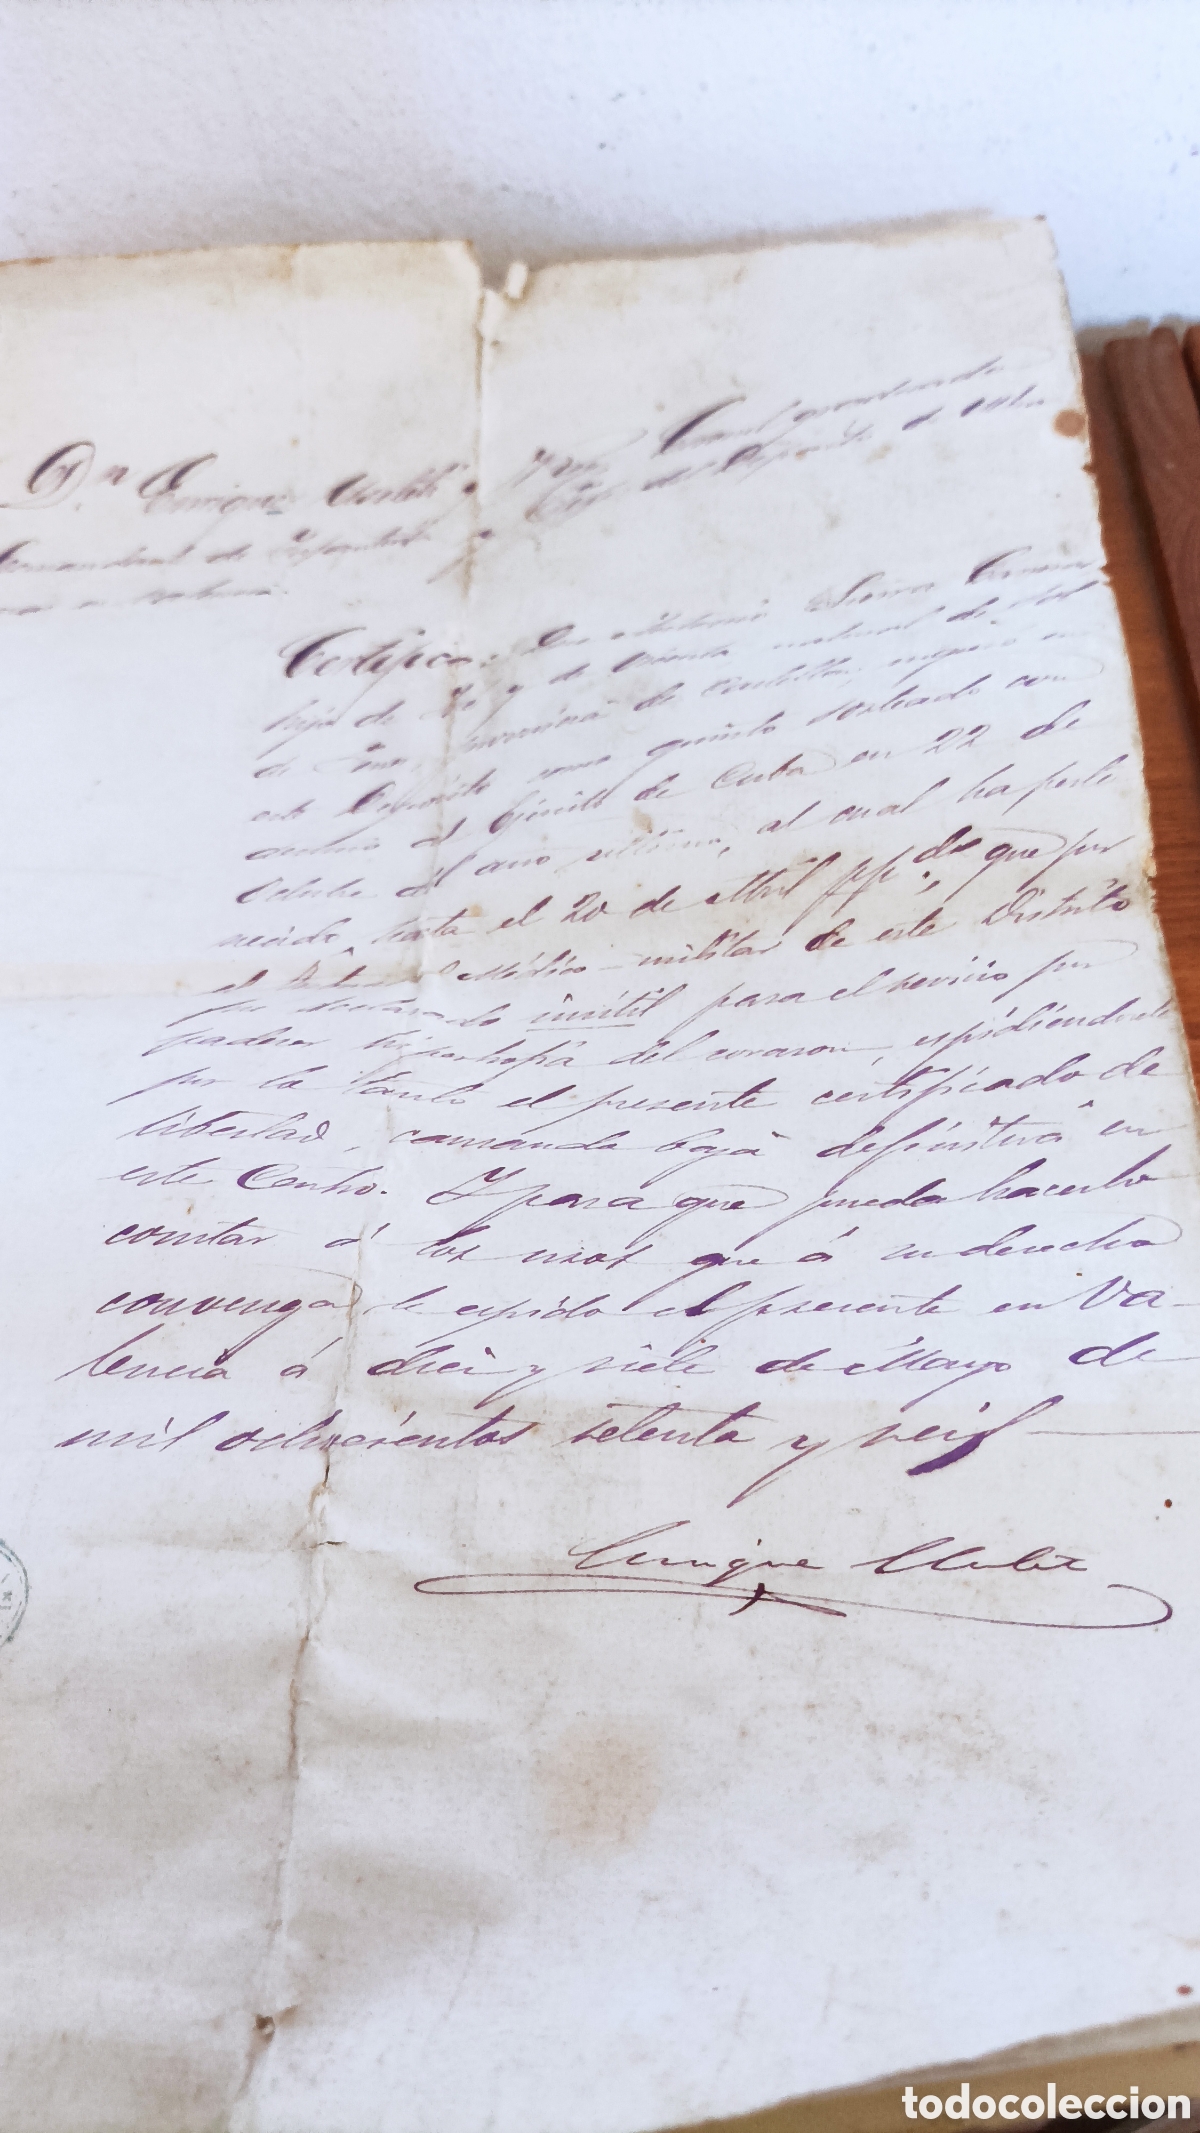 Dn Enrique
Comandante de Infantería y Gefe del Depósito de
Certifico: Que Antonio
hijo de José y de Vicenta natural de
de provincia de Castellón, ingresó en
este Depósito como quinto sorteado con
destino al Ejército de Cuba en 22 de
Octubre del año último, al cual ha perte
necido hasta el 20 de Abril pp.do, que por
el Médico-militar de este Distrito
fue declarado inútil para el servicio por
padecer hipertrofia del corazon, espidiéndosele
por lo tanto el presente certificado de
libertad, causando baja definitiva en
este Centro. Y para que pueda hacerlo
constar á los usos que á su derecho
convenga le espido el presente en Va-
lencia á diez y siete de Mayo de
mil ochocientos setenta y seis
Enrique
todocoleccion